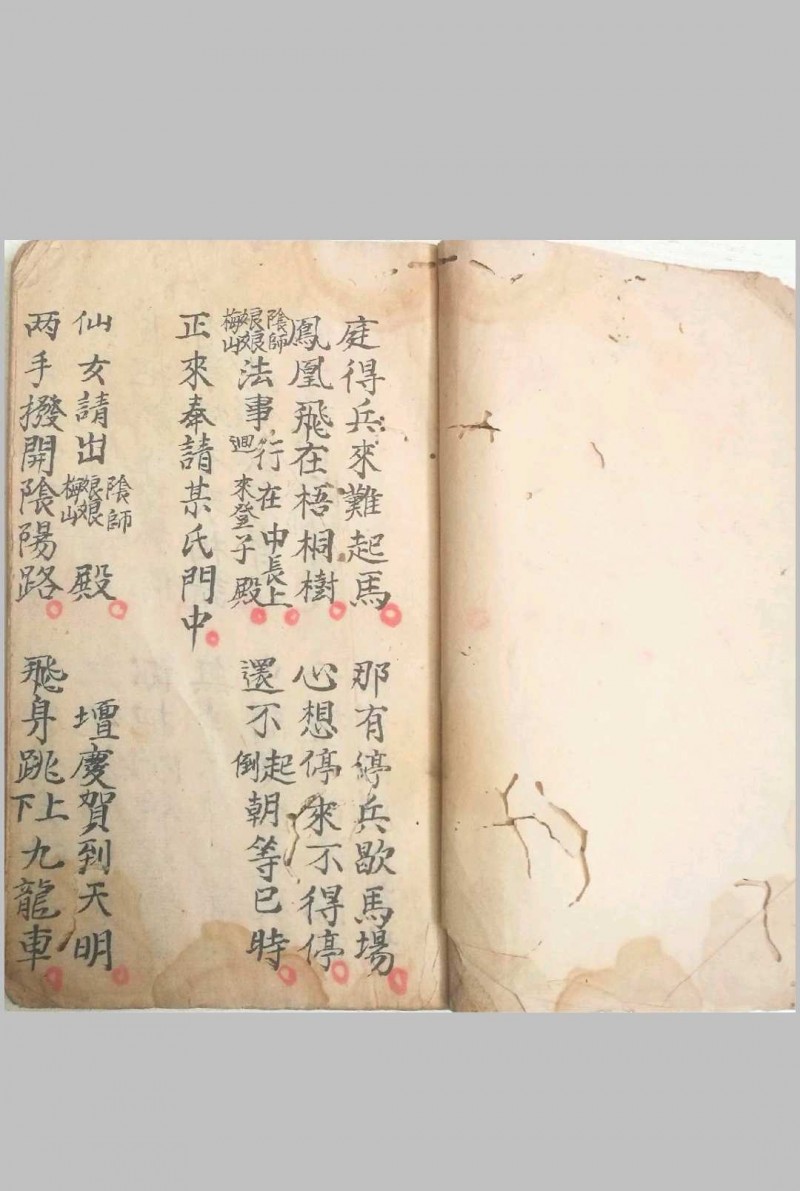 庭得兵來難起馬 那有停兵歇馬場
鳳凰飛在梧桐樹 心想停來不得停
陰師 娘娘 梅山 法事行在中長上 還不起朝等巳時
迴來登子殿 倒
正來奉請某氏門中
仙女請出 陰師 娘娘 梅山 殿 壇慶賀到天明
两手撥開陰陽路 飛身跳上下九龍車